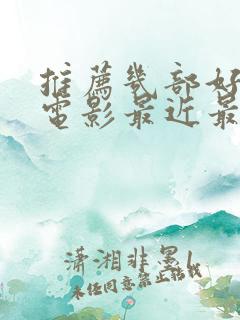 推薦幾部好
電影最近最
瀟湘非墨
未经同意禁止转载